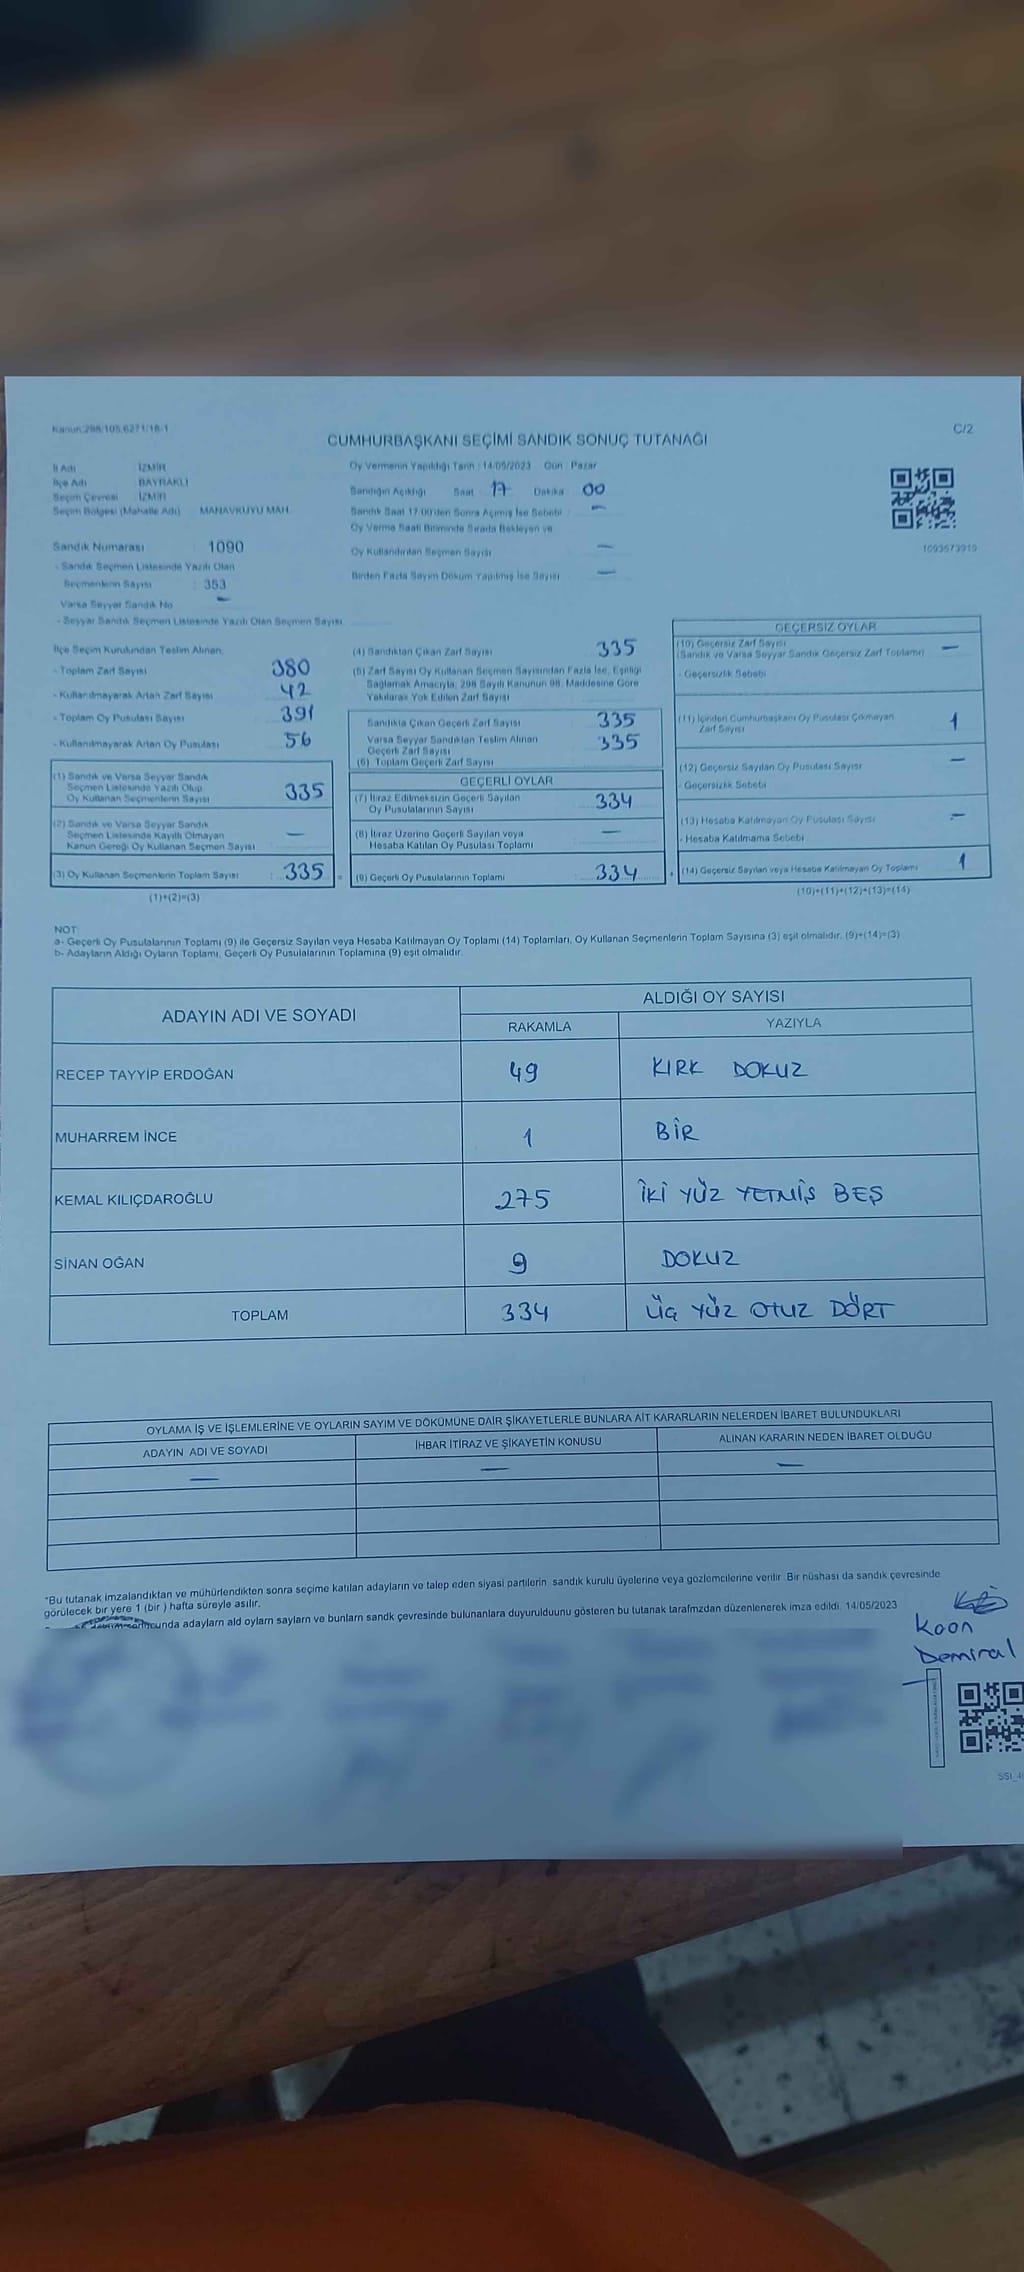 Kanun:298/105,6271/18-1
C/2
CUMHURBAŞKANI SEÇİMİ SANDIK SONUÇ TUTANAĞI
İl Adı : İZMİR
İlçe Adı : BAYRAKLI
Seçim Çevresi : İZMİR
Seçim Bölgesi (Mahalle Adı) MANAVKUYU MAH.
Sandık Numarası : 1090
- Sandık Seçmen Listesinde Yazılı Olan
Seçmenlerin Sayısı : 353
Varsa Seyyar Sandık No –
- Seyyar Sandık Seçmen Listesinde Yazılı Olan Seçmen Sayısı
Oy Vermenin Yapıldığı Tarih : 14/05/2023 Gün : Pazar
Sandığın Açıldığı Saat : 17 Dakika : 00
Sandık Saat 17.00'den Sonra Açılmış İse Sebebi –
Oy Verme Saati Bitiminde Sırada Bekleyen ve
Oy Kullandırılan Seçmen Sayısı –
Birden Fazla Sayım Döküm Yapılmış İse Sayısı –
1093673919
İlçe Seçim Kurulundan Teslim Alınan;
- Toplam Zarf Sayısı 380
- Kullanılmayarak Artan Zarf Sayısı 42
- Toplam Oy Pusulası Sayısı 391
- Kullanılmayarak Artan Oy Pusulası 56
(1) Sandık ve Varsa Seyyar Sandık
Seçmen Listesinde Yazılı Olup
Oy Kullanan Seçmenlerin Sayısı 335
(2) Sandık ve Varsa Seyyar Sandık
Seçmen Listesinde Kayıtlı Olmayan
Kanun Gereği Oy Kullanan Seçmen Sayısı –
(3) Oy Kullanan Seçmenlerin Toplam Sayısı : 335
(1)+(2)=(3)
(4) Sandıktan Çıkan Zarf Sayısı 335
(5) Zarf Sayısı Oy Kullanan Seçmen Sayısından Fazla İse, Eşitliği
Sağlamak Amacıyla, 298 Sayılı Kanunun 98. Maddesine Göre
Yakılarak Yok Edilen Zarf Sayısı
Sandıkta Çıkan Geçerli Zarf Sayısı 335
Varsa Seyyar Sandıktan Teslim Alınan
Geçerli Zarf Sayısı 335
(6) Toplam Geçerli Zarf Sayısı
GEÇERLİ OYLAR
(7) İtiraz Edilmeksizin Geçerli Sayılan
Oy Pusulalarının Sayısı 334
(8) İtiraz Üzerine Geçerli Sayılan veya
Hesaba Katılan Oy Pusulası Toplamı –
(9) Geçerli Oy Pusulalarının Toplamı : 334
GEÇERSİZ OYLAR
(10) Geçersiz Zarf Sayısı
(Sandık ve Varsa Seyyar Sandık Geçersiz Zarf Toplamı) –
- Geçersizlik Sebebi
(11) İçinden Cumhurbaşkanı Oy Pusulası Çıkmayan
Zarf Sayısı 1
(12) Geçersiz Sayılan Oy Pusulası Sayısı –
- Geçersizlik Sebebi
(13) Hesaba Katılmayan Oy Pusulası Sayısı –
- Hesaba Katılmama Sebebi
(14) Geçersiz Sayılan veya Hesaba Katılmayan Oy Toplamı 1
(10)+(11)+(12)+(13)=(14)
NOT
a- Geçerli Oy Pusulalarının Toplamı (9) ile Geçersiz Sayılan veya Hesaba Katılmayan Oy Toplamı (14) Toplamları, Oy Kullanan Seçmenlerin Toplam Sayısına (3) eşit olmalıdır. (9)+(14)=(3)
b- Adayların Aldığı Oyların Toplamı, Geçerli Oy Pusulalarının Toplamına (9) eşit olmalıdır.
ADAYIN ADI VE SOYADI
ALDIĞI OY SAYISI
RAKAMLA YAZIYLA
RECEP TAYYİP ERDOĞAN 49 KIRK DOKUZ
MUHARREM İNCE 1 BİR
KEMAL KILIÇDAROĞLU 275 İKİ YÜZ YETMİŞ BEŞ
SİNAN OĞAN 9 DOKUZ
TOPLAM 334 ÜÇ YÜZ OTUZ DÖRT
OYLAMA İŞ VE İŞLEMLERİNE VE OYLARIN SAYIM VE DÖKÜMÜNE DAİR ŞİKAYETLERLE BUNLARA AİT KARARLARIN NELERDEN İBARET BULUNDUKLARI
ADAYIN ADI VE SOYADI İHBAR İTİRAZ VE ŞİKAYETİN KONUSU ALINAN KARARIN NEDEN İBARET OLDUĞU
– – –
*Bu tutanak imzalandıktan ve mühürlendikten sonra seçime katılan adayların ve talep eden siyasi partilerin sandık kurulu üyelerine veya gözlemcilerine verilir. Bir nüshası da sandık çevresinde
görülecek bir yere 1 (bir ) hafta süreyle asılır.
adaylarn ald oylarn saylarn ve bunlarn sandk çevresinde bulunanlara duyurulduunu gösteren bu tutanak tarafmzdan düzenlenerek imza edildi. 14/05/2023
Kaan
Demiral